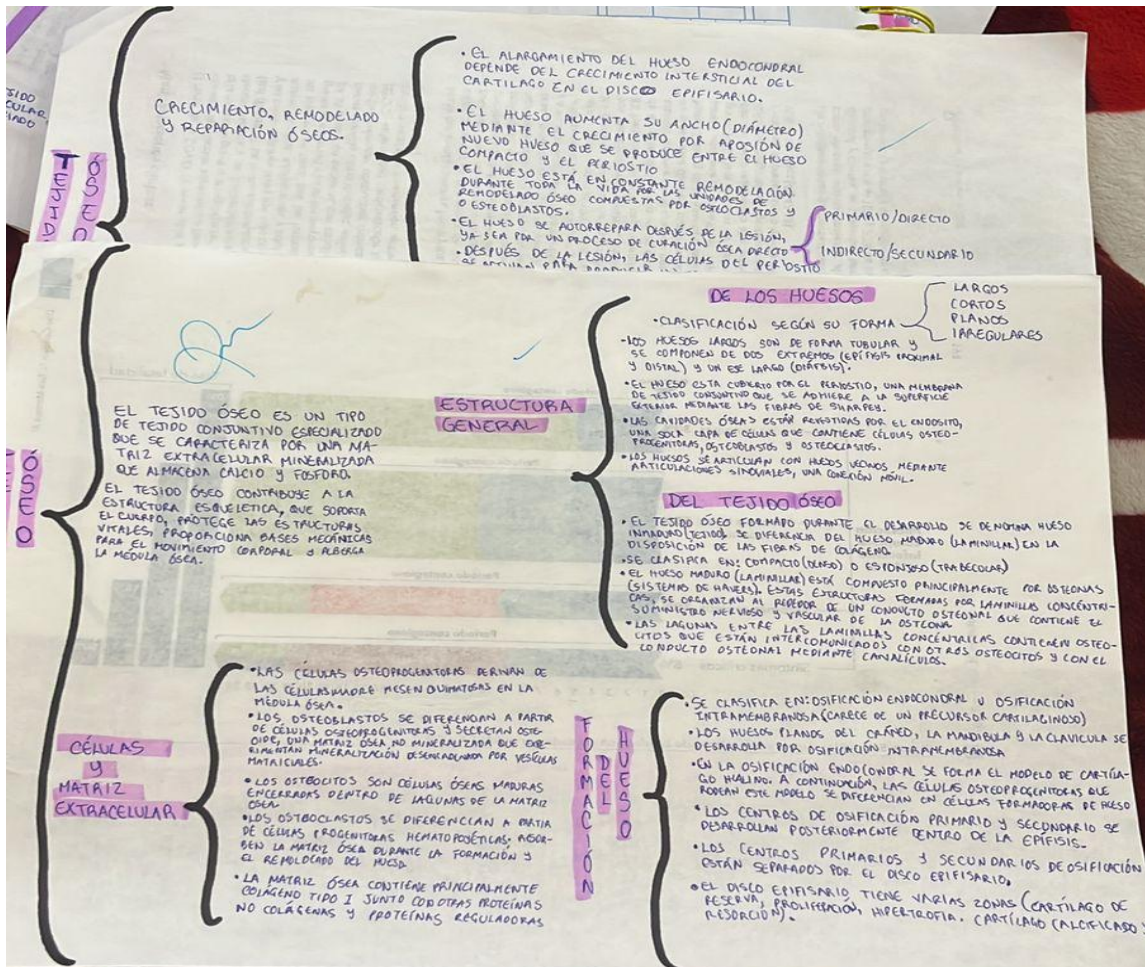 TEJIDO
ÓSEO
CRECIMIENTO, REMODELADO
Y REPARACIÓN ÓSEOS.
• EL ALARGAMIENTO DEL HUESO ENDOCONDRAL
DEPENDE DEL CRECIMIENTO INTERSTICIAL DEL
CARTILAGO EN EL DISCO EPIFISARIO.
• EL HUESO AUMENTA SU ANCHO (DIÁMETRO)
MEDIANTE EL CRECIMIENTO POR APOSIÓN DE
NUEVO HUESO QUE SE PRODUCE ENTRE EL HUESO
COMPACTO Y EL PERIOSTIO
• EL HUESO ESTÁ EN CONSTANTE REMODELACIÓN
DURANTE TODA LA VIDA POR LAS UNIDADES DE
REMODELADO ÓSEO COMPUESTAS POR OSTEOCLASTOS Y
OSTEOBLASTOS.
• EL HUESO SE AUTORREPARA DESPUÉS DE LA LESIÓN,
YA SEA POR UN PROCESO DE CURACIÓN ÓSEA DIRECTO
PRIMARIO/DIRECTO
INDIRECTO/SECUNDARIO
• DESPUÉS DE LA LESIÓN, LAS CÉLULAS DEL PERIOSTIO
ÓSEO
EL TEJIDO ÓSEO ES UN TIPO
DE TEJIDO CONJUNTIVO ESPECIALIZADO
QUE SE CARACTERIZA POR UNA MA-
TRIZ EXTRACELULAR MINERALIZADA
QUE ALMACENA CALCIO Y FOSFORO.
EL TEJIDO ÓSEO CONTRIBUYE A LA
ESTRUCTURA ESQUELETICA, QUE SOPORTA
EL CUERPO, PROTEGE LAS ESTRUCTURAS
VITALES, PROPORCIONA BASES MECÁNICAS
PARA EL MOVIMIENTO CORPORAL Y ALBERGA
LA MEDULA ÓSEA.
ESTRUCTURA
GENERAL
DE LOS HUESOS
• CLASIFICACIÓN SEGÚN SU FORMA
LARGOS
CORTOS
PLANOS
IRREGULARES
• LOS HUESOS LARGOS SON DE FORMA TUBULAR Y
SE COMPONEN DE DOS EXTREMOS (EPÍFISIS PROXIMAL
Y DISTAL) Y UN EJE LARGO (DIÁFISIS).
• EL HUESO ESTA CUBIERTO POR EL PERIOSTIO, UNA MEMBRANA
DE TEJIDO CONJUNTIVO QUE SE ADHIERE A LA SUPERFICIE
EXTERIOR MEDIANTE LAS FIBRAS DE SHARPEY.
• LAS CAVIDADES ÓSEAS ESTÁN REVESTIDAS POR EL ENDOSITO,
UNA SOLA CAPA DE CÉLULAS QUE CONTIENE CÉLULAS OSTEO-
PROGENITORAS, OSTEOBLASTOS Y OSTEOCLASTOS.
• LOS HUESOS SE ARTICULAN CON HUESOS VECINOS MEDIANTE
ARTICULACIONES SINOVIALES, UNA CONEXIÓN MÓVIL.
DEL TEJIDO ÓSEO
• EL TEJIDO ÓSEO FORMADO DURANTE EL DESARROLLO SE DENOMINA HUESO
INMADURO (TEJIDO). SE DIFERENCIA DEL HUESO MADURO (LAMINILLAR) EN LA
DISPOSICIÓN DE LAS FIBRAS DE COLÁGENO.
• SE CLASIFICA EN: COMPACTO (DENSO) O ESPONJOSO (TRABECULAR)
• EL HUESO MADURO (LAMINILLAR) ESTÁ COMPUESTO PRINCIPALMENTE POR OSTEONAS
(SISTEMAS DE HAVERS). ESTAS ESTRUCTURAS FORMADAS POR LAMINILLAS CONCÉNTRI-
CAS, SE ORGANIZAN AL REDEDOR DE UN CONDUCTO OSTEONAL QUE CONTIENE EL
SUMINISTRO NERVIOSO Y VASCULAR DE LA OSTEONA
• LAS LAGUNAS ENTRE LAS LAMINILLAS CONCÉNTRICAS CONTIENEN OSTEO-
CITOS QUE ESTÁN INTERCOMUNICADOS CON OTROS OSTEOCITOS Y CON EL
CONDUCTO OSTEONAL MEDIANTE CANALÍCULOS.
CÉLULAS
Y
MATRIZ
EXTRACELULAR
• LAS CÉLULAS OSTEOPROGENITORAS DERIVAN DE
LAS CÉLULAS MADRE MESENQUIMATOSAS EN LA
MÉDULA ÓSEA.
• LOS OSTEOBLASTOS SE DIFERENCIAN A PARTIR
DE CÉLULAS OSTEOPROGENITORAS Y SECRETAN OSTE-
OIDE, UNA MATRIZ ÓSEA NO MINERALIZADA QUE EXPE-
RIMENTAN MINERALIZACIÓN DESENCADENADA POR VESÍCULAS
MATRICIALES.
• LOS OSTEOCITOS SON CÉLULAS ÓSEAS MADURAS
ENCERRADAS DENTRO DE LAGUNAS DE LA MATRIZ
ÓSEA
• LOS OSTEOCLASTOS SE DIFERENCIAN A PARTIR
DE CÉLULAS PROGENITORAS HEMATOPOYÉTICAS; ABSOR-
BEN LA MATRIZ ÓSEA DURANTE LA FORMACIÓN Y
EL REMOLDADO DEL HUESO
• LA MATRIZ ÓSEA CONTIENE PRINCIPALMENTE
COLÁGENO TIDO I JUNTO CON OTRAS PROTEÍNAS
NO COLÁGENAS Y PROTEÍNAS REGULADORAS
FORMACIÓN
DEL
HUESO
• SE CLASIFICA EN: OSIFICACIÓN ENDOCONDRAL U OSIFICACIÓN
INTRAMEMBRANOSA (CARECE DE UN PRECURSOR CARTILAGINOSO)
• LOS HUESOS PLANOS DEL CRÁNEO, LA MANDIBULA Y LA CLAVICULA SE
DESARROLLA POR OSIFICACIÓN INTRAMEMBRANOSA
• EN LA OSIFICACIÓN ENDOCONDRAL SE FORMA EL MODELO DE CARTÍLA-
GO HIALINO. A CONTINUACIÓN, LAS CÉLULAS OSTEOPROGENITORAS QUE
RODEAN ESTE MODELO SE DIFERENCIAN EN CÉLULAS FORMADORAS DE HUESO
• LOS CENTROS DE OSIFICACIÓN PRIMARIO Y SECUNDARIO SE
DESARROLLAN POSTERIORMENTE DENTRO DE LA EPÍFISIS.
• LOS CENTROS PRIMARIOS Y SECUNDARIOS DE OSIFICACIÓN
ESTÁN SEPARADOS POR EL DISCO EPIFISARIO.
• EL DISCO EPIFISARIO TIENE VARIAS ZONAS (CARTÍLAGO DE
RESERVA, PROLIFERACIÓN, HIPERTROFIA. CARTÍLAGO CALCIFICADO Y
RESORCIÓN).